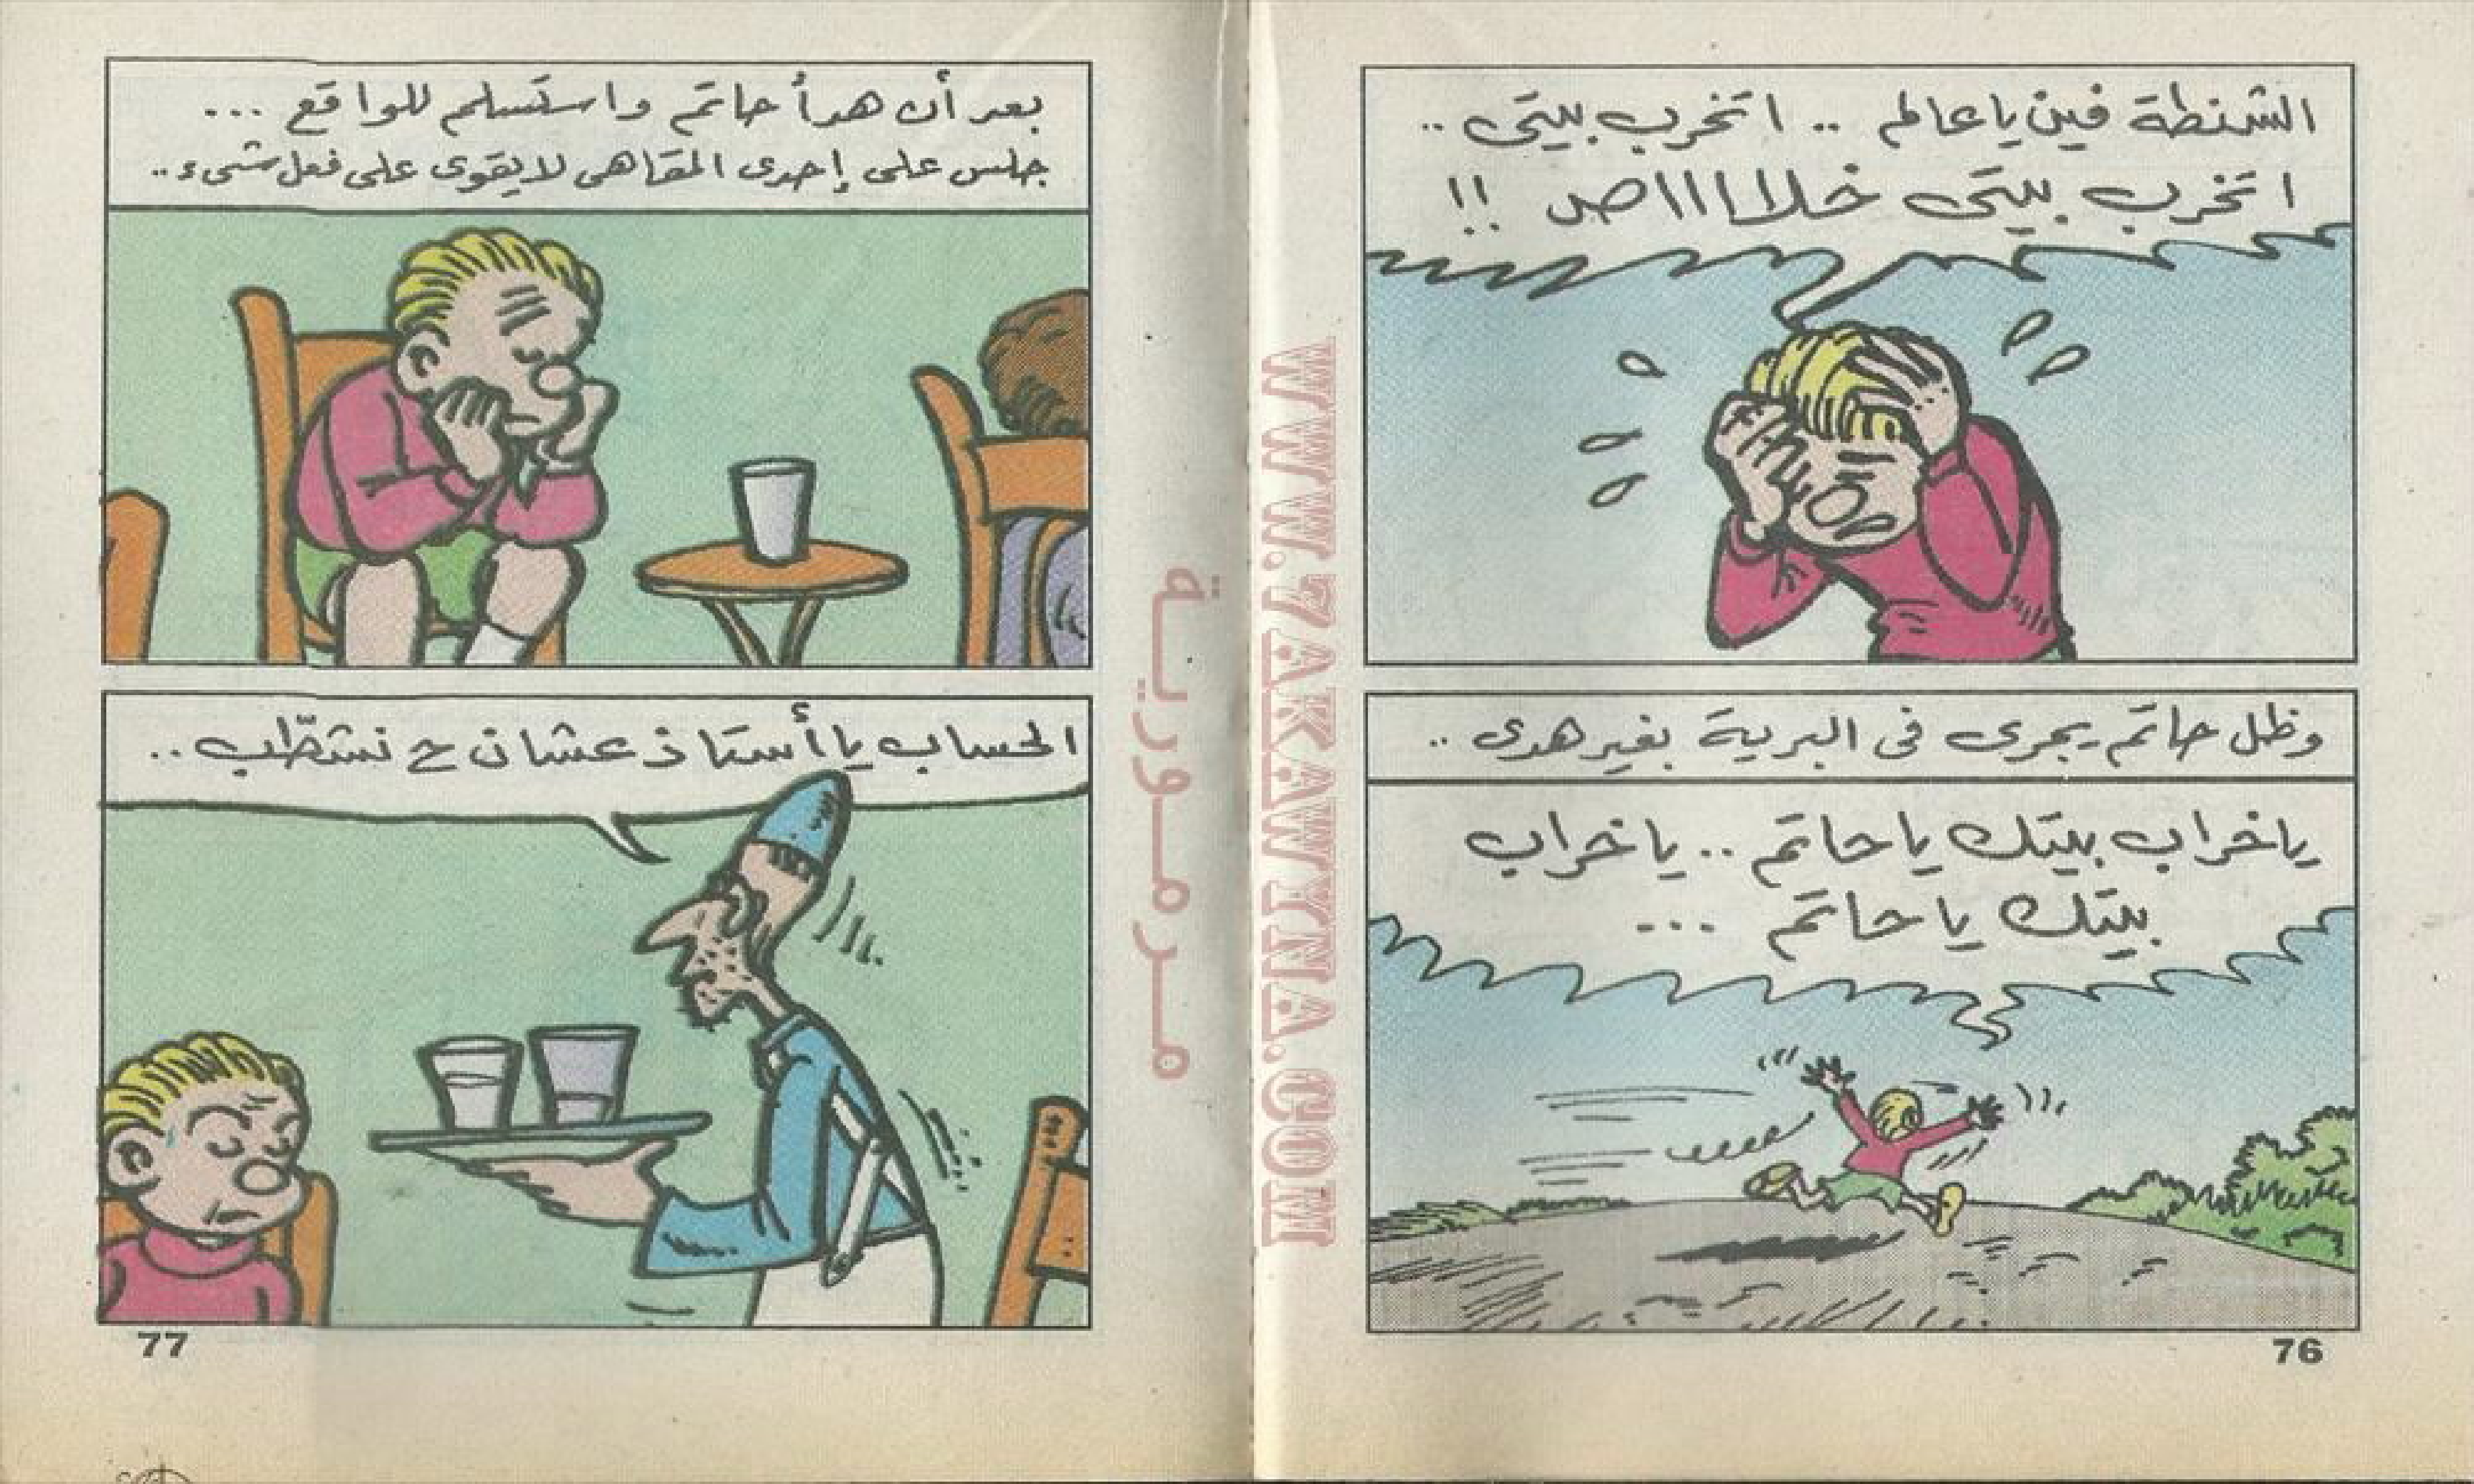 الشنطة فين يا عالم .. اتخرب بيتى ..
اتخرب بيتى خلاااااص !!
وظل حاتم يجرى فى البرية بغير هدى ..
يا خراب بيتك يا حاتم .. يا خراب
بيتك يا حاتم ...
76
بعد أن هدأ حاتم واستسلم للواقع ...
جلس على إحدى المقاهى لا يقوى على فعل شىء ..
الحساب يا أستاذ عشان ح نشطّب ..
77
مـرمـوريـة
WWW.7AKAWYNA.COM